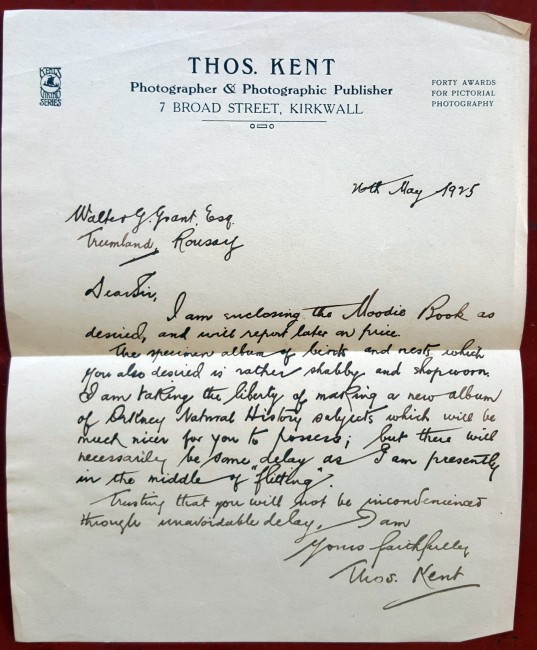 THOS. KENT
Photographer & Photographic Publisher
7 BROAD STREET, KIRKWALL
KENT'S
VIKING
SERIES
FORTY AWARDS
FOR PICTORIAL
PHOTOGRAPHY
May 1925
Walter G. Grant, Esq.
Trumland, Rousay
Dear Sir,
I am enclosing the Moodie Book as
desired, and will report later on price.
The specimen album of birds and nests which
you also desired is rather shabby and shopworn.
I am taking the liberty of making a new album
of Orkney Natural History subjects which will be
much nicer for you to possess; but there will
necessarily be some delay as I am presently
in the middle of "flitting".
Trusting that you will not be inconvenienced
through unavoidable delay, I am
Yours faithfully
Thos. Kent